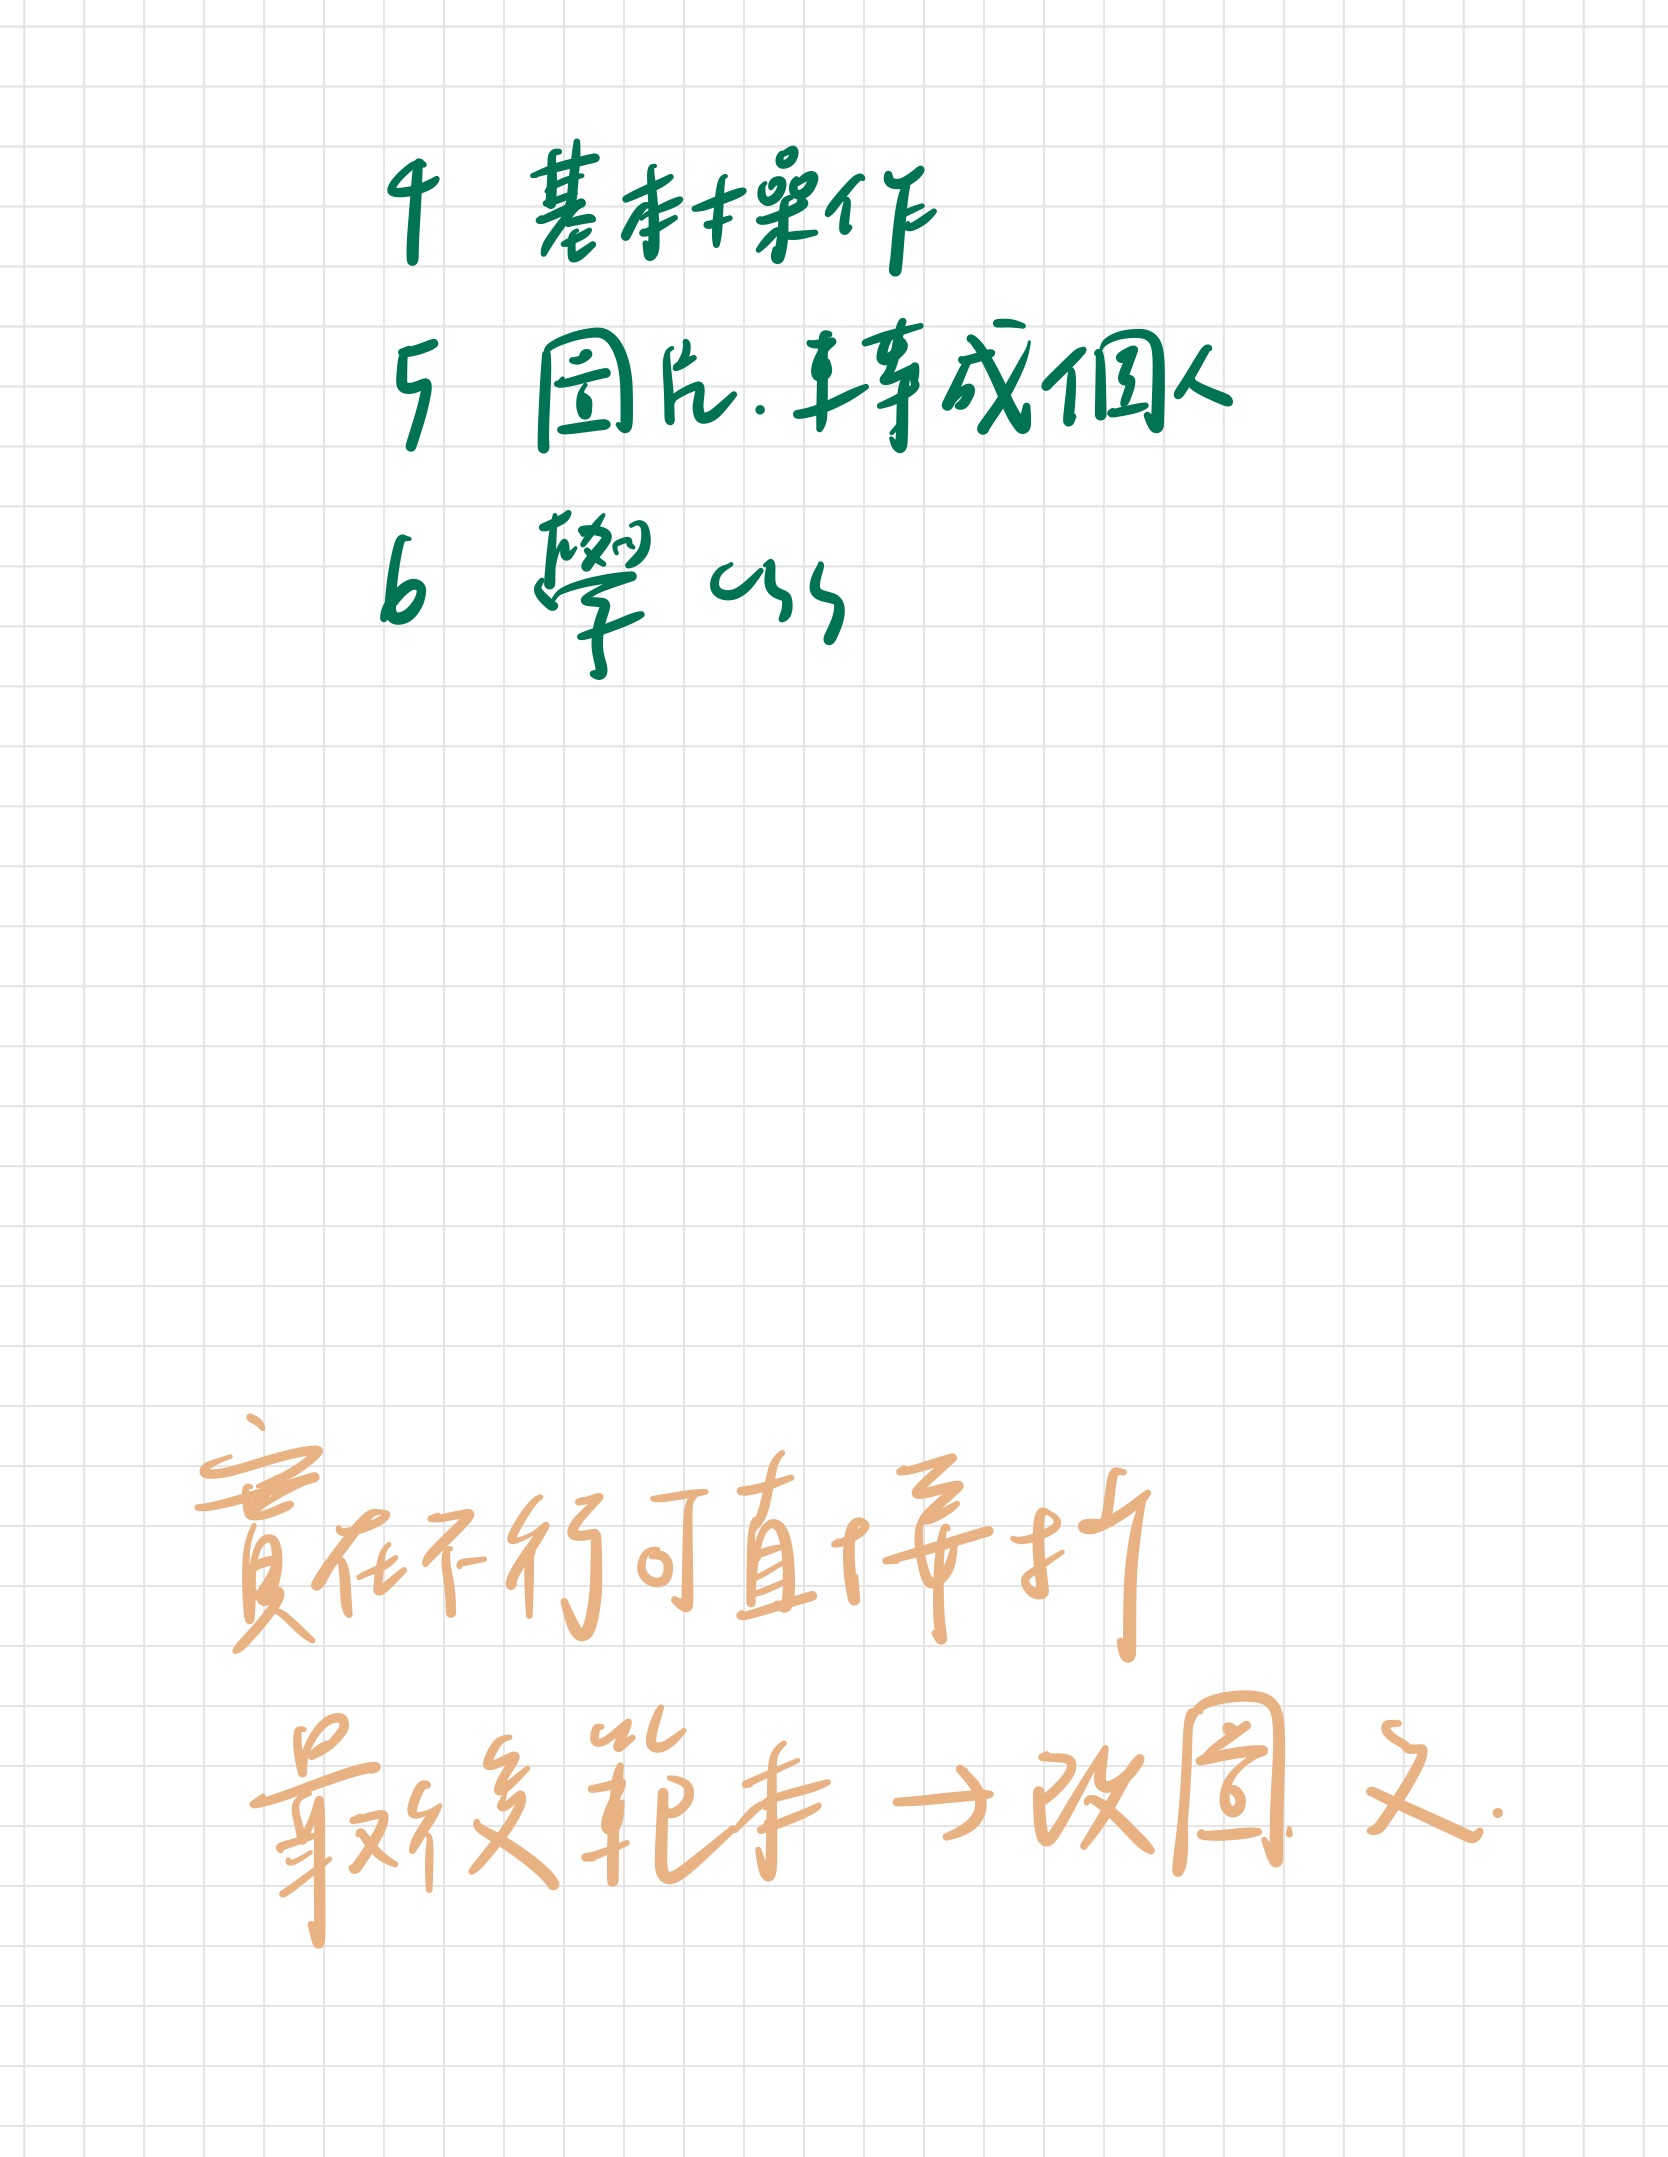 4 基本操作
5 圖片.轉成個人
6 學 css
實在不行可直
最後範本 → 改圖文.